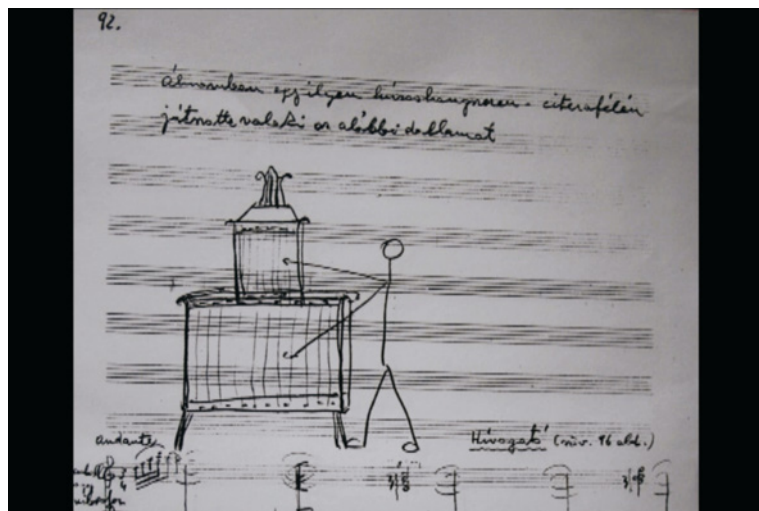 92.
álmomban egy ilyen húroshangszeren - citeraféleén
játszotta valaki az alábbi dallamot
andante
Hívogató (növ. 96 old.)